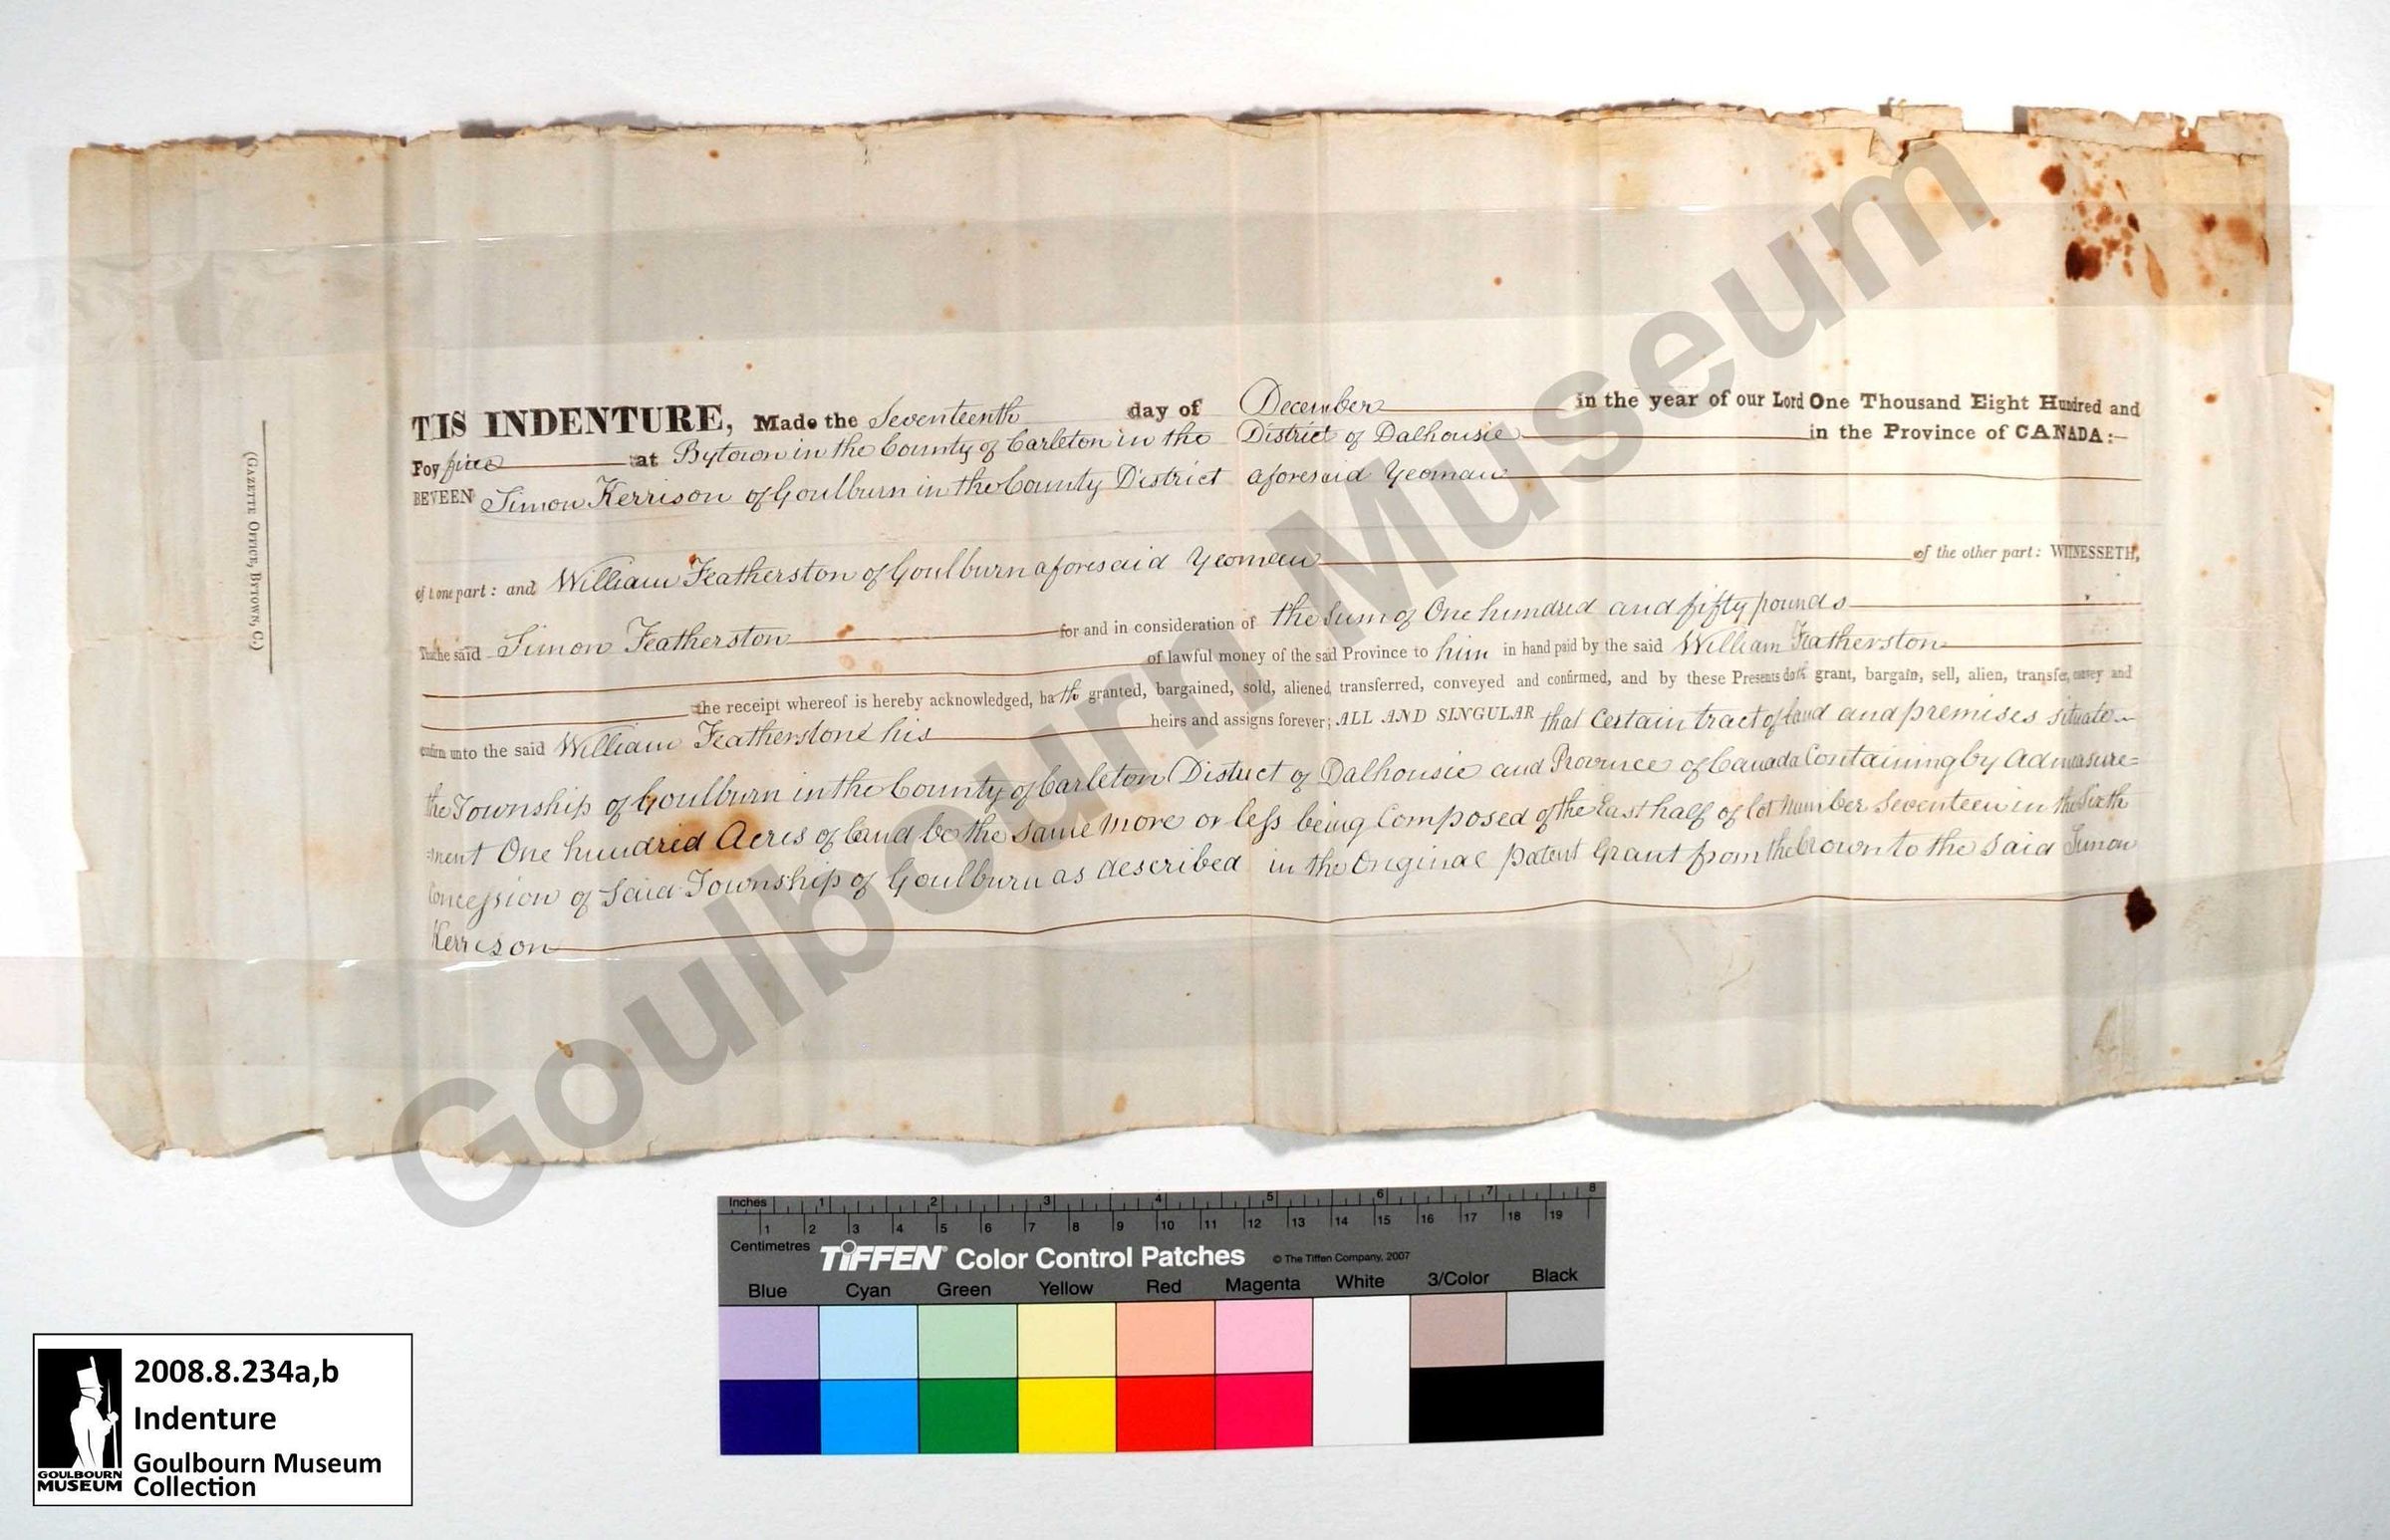 TIS INDENTURE, Made the Seventeenth day of December in the year of our Lord One Thousand Eight Hundred and
Foy five at Bytown in the County of Carleton in the District of Dalhousie in the Province of CANADA:—
BEVEEN Simon Kerrison of Goulburn in the County District aforesaid Yeoman
of t one part: and William Featherston of Goulburn aforesaid Yeoman of the other part: WITNESSETH,
That he said Simon Featherston for and in consideration of the Sum of One hundred and fifty pounds
of lawful money of the said Province to him in hand paid by the said William Featherston
the receipt whereof is hereby acknowledged, hath granted, bargained, sold, aliened transferred, conveyed and confirmed, and by these Presents doth grant, bargain, sell, alien, transfer, convey and
confirm unto the said William Featherstone his heirs and assigns forever; ALL AND SINGULAR that Certain tract of land and premises situate
the Township of Goulburn in the County of Carleton District of Dalhousie and Province of Canada Containing by admeasure=
=ment One hundred Acres of land be the same more or less being Composed of the East half of lot Number Seventeen in the Sixth
Concession of Said Township of Goulburn as described in the Original patent Grant from the Crown to the Said Simon
Kerrison
(GAZETTE OFFICE, BYTOWN, C.)
Goulbourn Museum
Inches 1 2 3 4 5 6 7 8
1 2 3 4 5 6 7 8 9 10 11 12 13 14 15 16 17 18 19
Centimetres TIFFEN Color Control Patches © The Tiffen Company, 2007
Blue Cyan Green Yellow Red Magenta White 3/Color Black
2008.8.234a,b
Indenture
Goulbourn Museum
Collection
GOULBOURN
MUSEUM